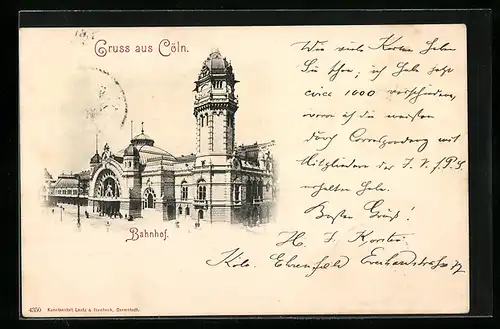 Gruss aus Cöln.
Wie viele Karten haben
Sie schon; ich habe jetzt
circa 1000 verschiedene,
wovon ich die meisten
durch Correspondenz mit
Mitgliedern der
erhalten habe.
Besten Gruß!
H. J.
Köln. Ehrenfeld
Bahnhof.
4350 Kunstanstalt Lautz & Isenbeck, Darmstadt.